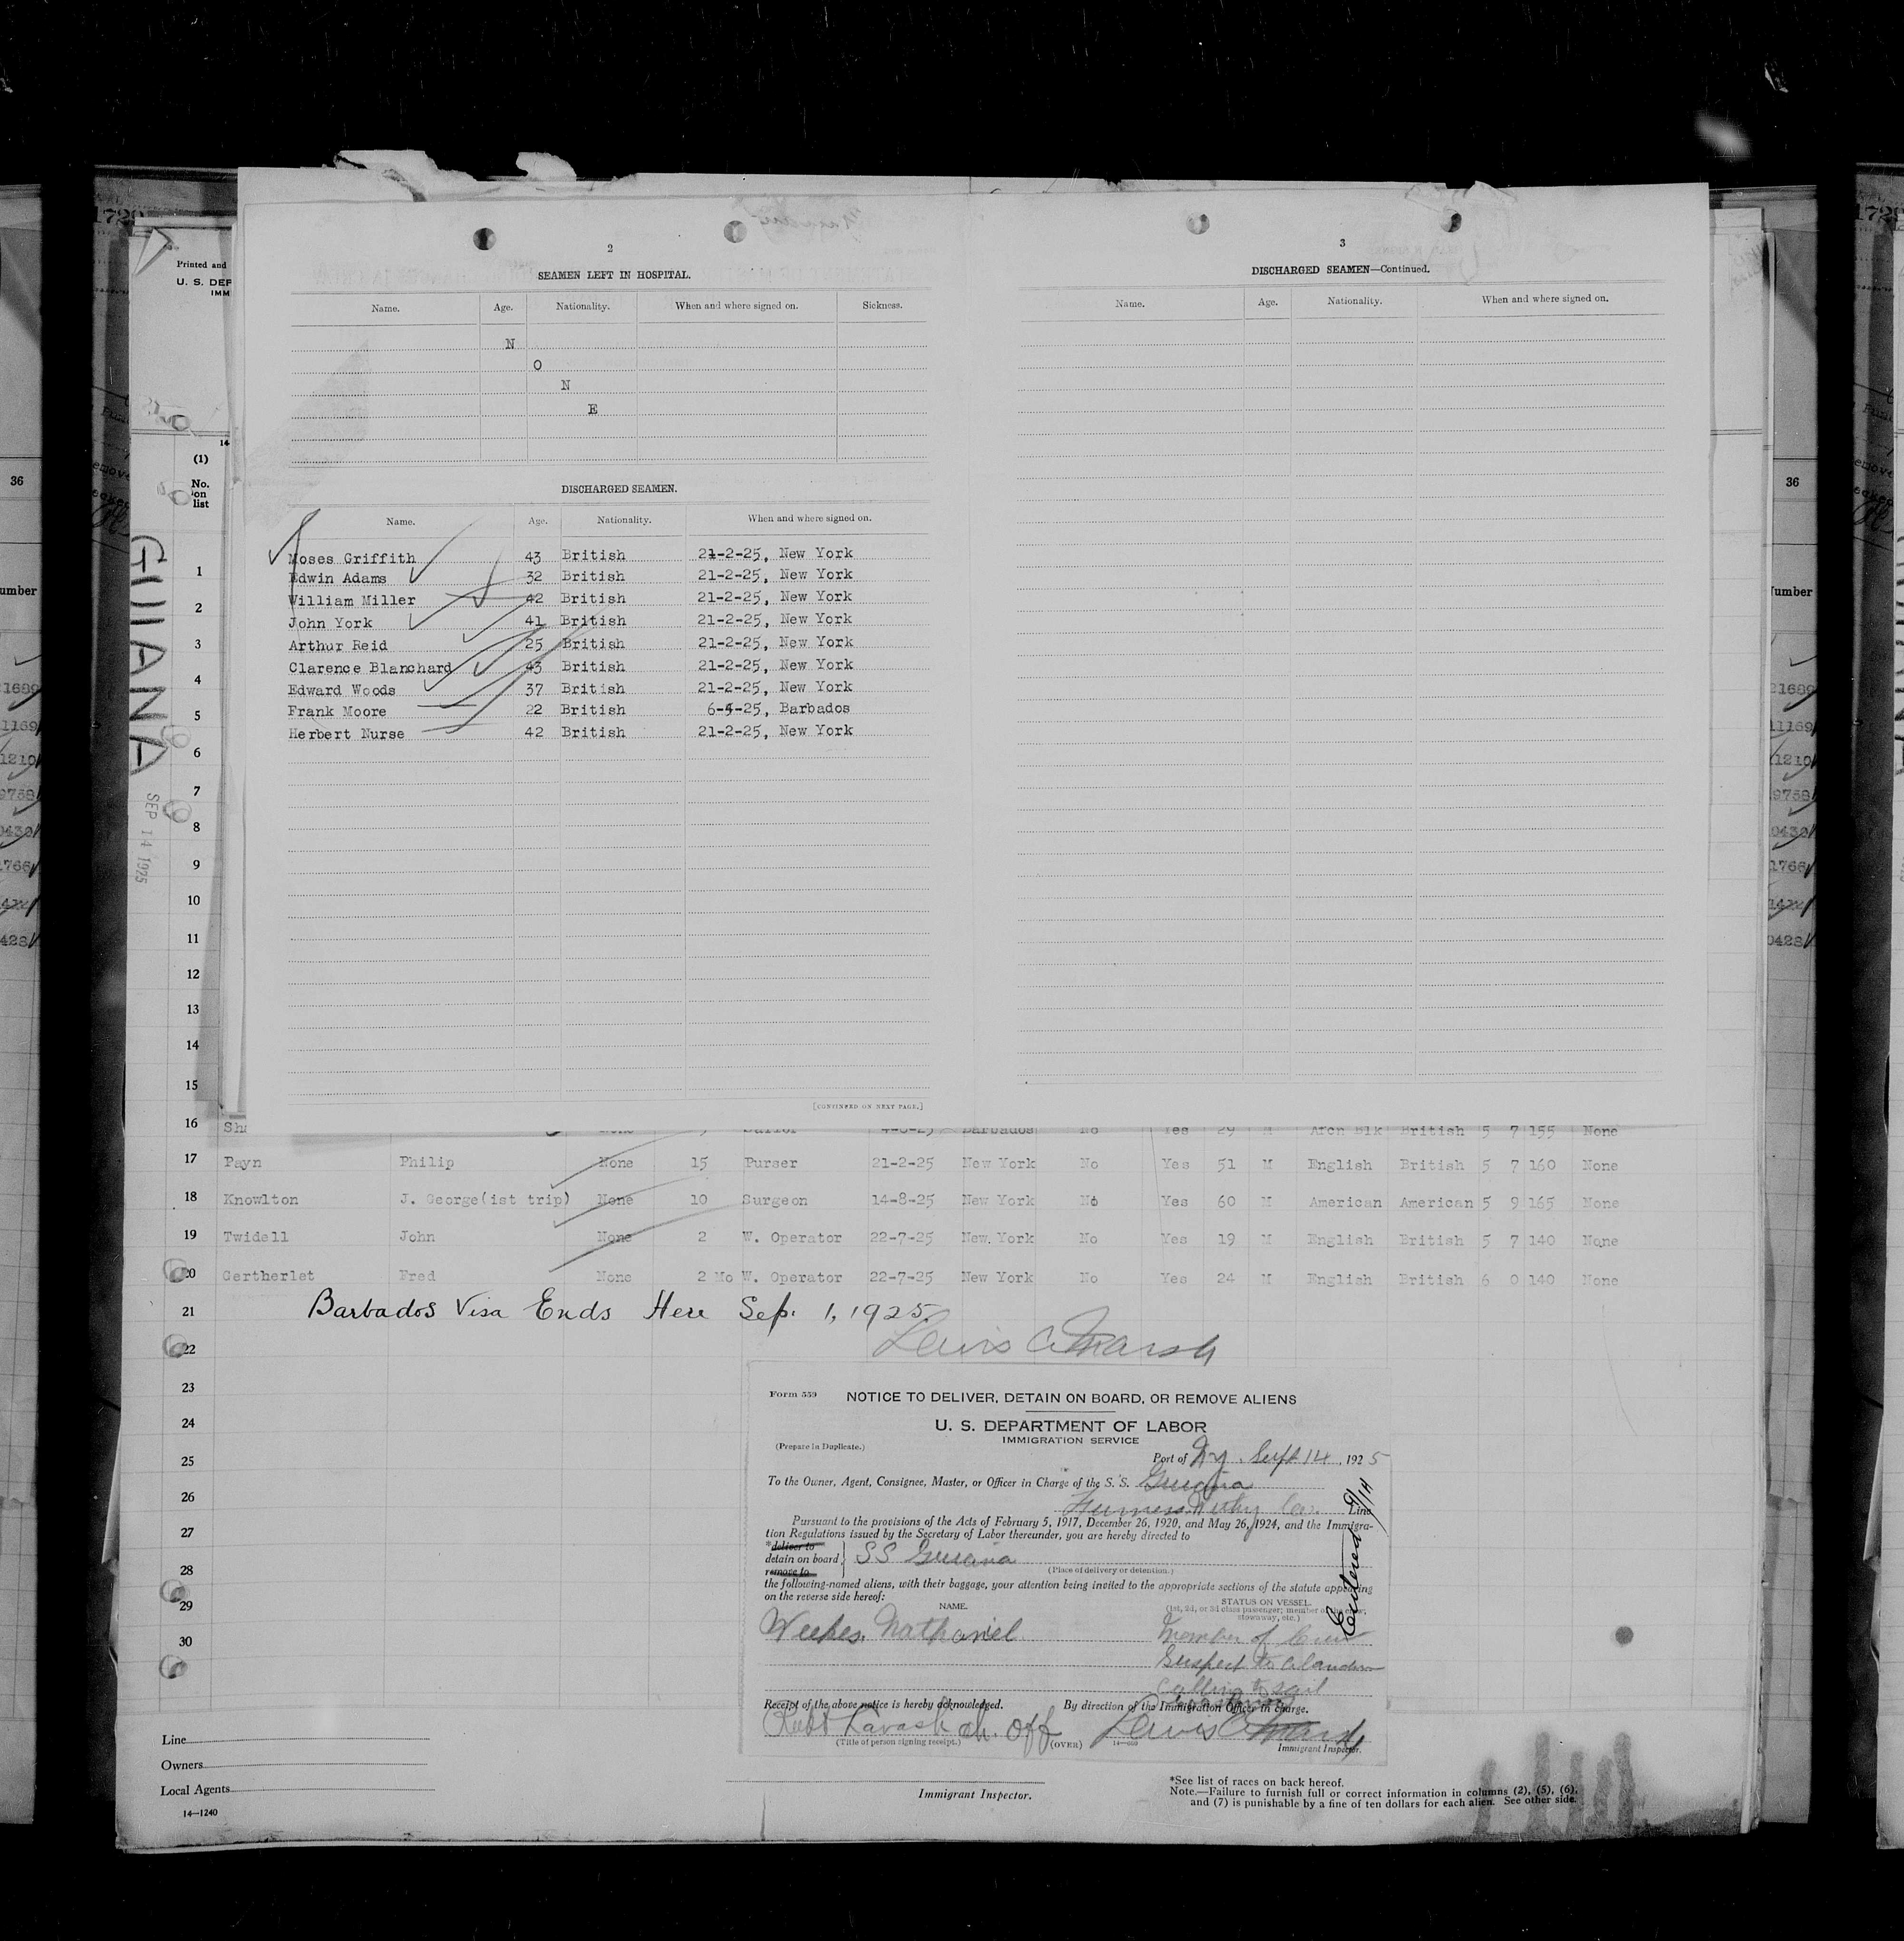 2
SEAMEN LEFT IN HOSPITAL.
Name. Age. Nationality. When and where signed on. Sickness.
N
O
N
E
DISCHARGED SEAMEN.
Name. Age. Nationality. When and where signed on.
Moses Griffith 43 British 21-2-25, New York
Edwin Adams 32 British 21-2-25, New York
William Miller 42 British 21-2-25, New York
John York 41 British 21-2-25, New York
Arthur Reid 25 British 21-2-25, New York
Clarence Blanchard 43 British 21-2-25, New York
Edward Woods 37 British 21-2-25, New York
Frank Moore 22 British 6-4-25, Barbados
Herbert Nurse 42 British 21-2-25, New York
[CONTINUED ON NEXT PAGE.]
3
DISCHARGED SEAMEN—Continued.
Name. Age. Nationality. When and where signed on.
Printed and
U. S. DEP
IMM
14
(1)
No.
on
list
GUIANA
SEP 14 1925
36
umber
1
2
3
4
5
6
7
8
9
10
11
12
13
14
15
16 Sh Sailor 4-8-25 Barbados No Yes 29 M Afcn Blk British 5 7 155 None
17 Payn Philip None 15 Purser 21-2-25 New York No Yes 51 M English British 5 7 160 None
18 Knowlton J. George(ist trip) None 10 Surgeon 14-8-25 New York No Yes 60 M American American 5 9 165 None
19 Twidell John None 2 W. Operator 22-7-25 New York No Yes 19 M English British 5 7 140 None
20 Gertherlet Fred None 2 Mo W. Operator 22-7-25 New York No Yes 24 M English British 6 0 140 None
21 Barbados Visa Ends Here Sep. 1, 1925.
22 Lewis C. Marsh
23
24
25
26
27
28
29
30
Form 559 NOTICE TO DELIVER, DETAIN ON BOARD, OR REMOVE ALIENS
U. S. DEPARTMENT OF LABOR
IMMIGRATION SERVICE
(Prepare in Duplicate.)
Port of N.Y. Sept 14, 1925
To the Owner, Agent, Consignee, Master, or Officer in Charge of the S. S. Guiana
Furness Withy Co. Line
Pursuant to the provisions of the Acts of February 5, 1917, December 26, 1920, and May 26, 1924, and the Immigra-
tion Regulations issued by the Secretary of Labor thereunder, you are hereby directed to
*deliver to
detain on board SS Guiana
remove to (Place of delivery or detention.)
the following-named aliens, with their baggage, your attention being invited to the appropriate sections of the statute appearing
on the reverse side hereof:
NAME. STATUS ON VESSEL.
(1st, 2d, or 3d class passenger; member of the crew;
stowaway, etc.)
Weekes, Nathaniel Member of Crew
Suspect to
to sail
Entered 9/14
Receipt of the above notice is hereby acknowledged. By direction of the Immigration Officer in charge.
Ch. Off Lewis C. Marsh
(Title of person signing receipt.) (OVER) Immigrant Inspector.
Line
Owners
Local Agents
14—1240
Immigrant Inspector.
*See list of races on back hereof.
Note.—Failure to furnish full or correct information in columns (2), (5), (6),
and (7) is punishable by a fine of ten dollars for each alien. See other side.